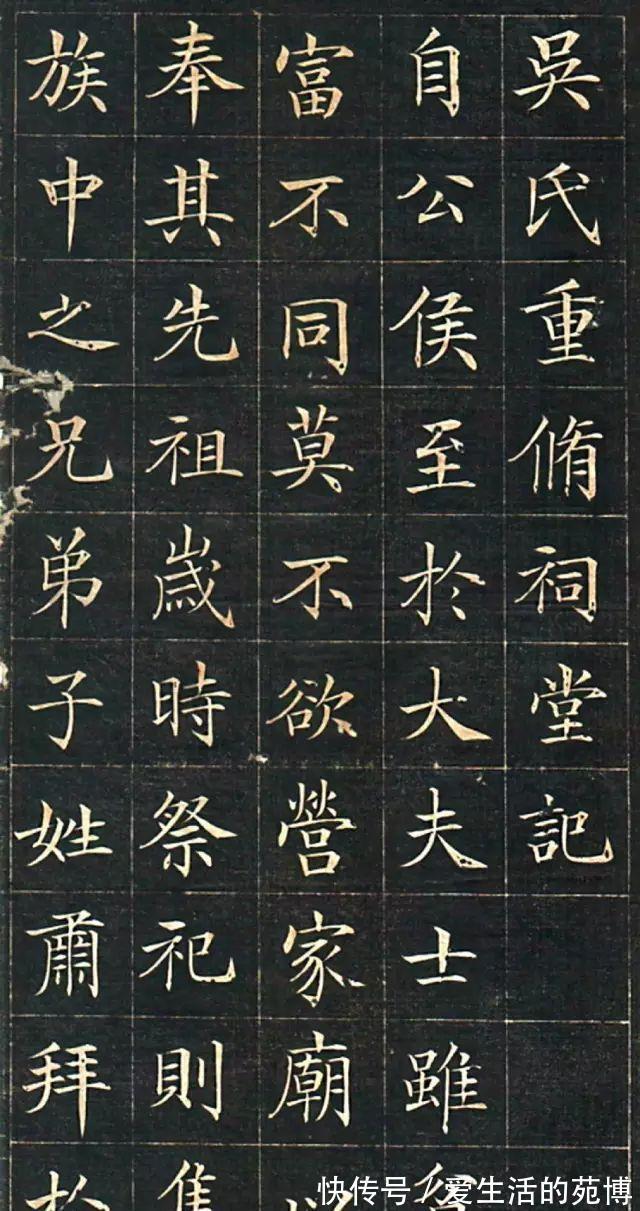 吳氏重脩祠堂記
自公侯至於大夫士雖
富不同莫不欲營家廟
奉其先祖歲時祭祀則
族中之兄弟子姓肅拜
快传号/爱生活的苑博